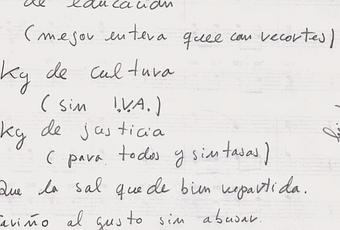 de educación
(mejor entera quee con recortes)
Kg de cultura
(sin I.V.A.)
Kg de justicia
(para todos y sin tasas)
Que la sal quede bien repartida.
Cariño al gusto sin abusar.